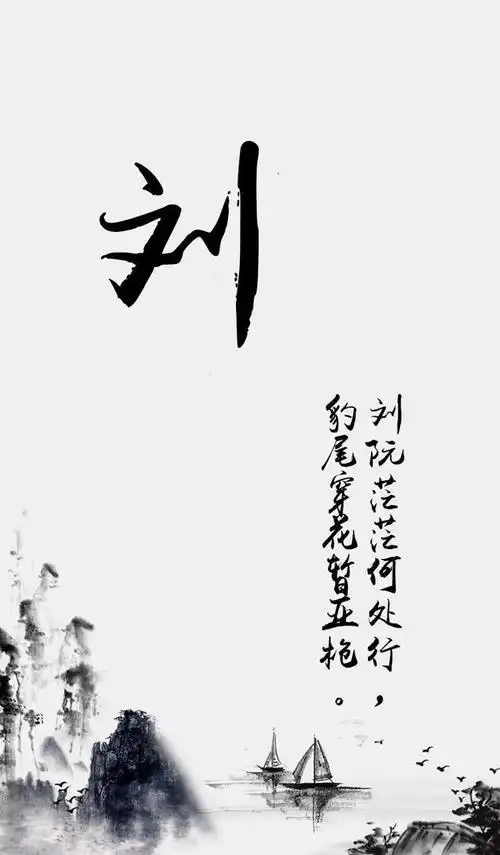 刘
刘阮茫茫何处行，
豹尾穿花暂亚枪。